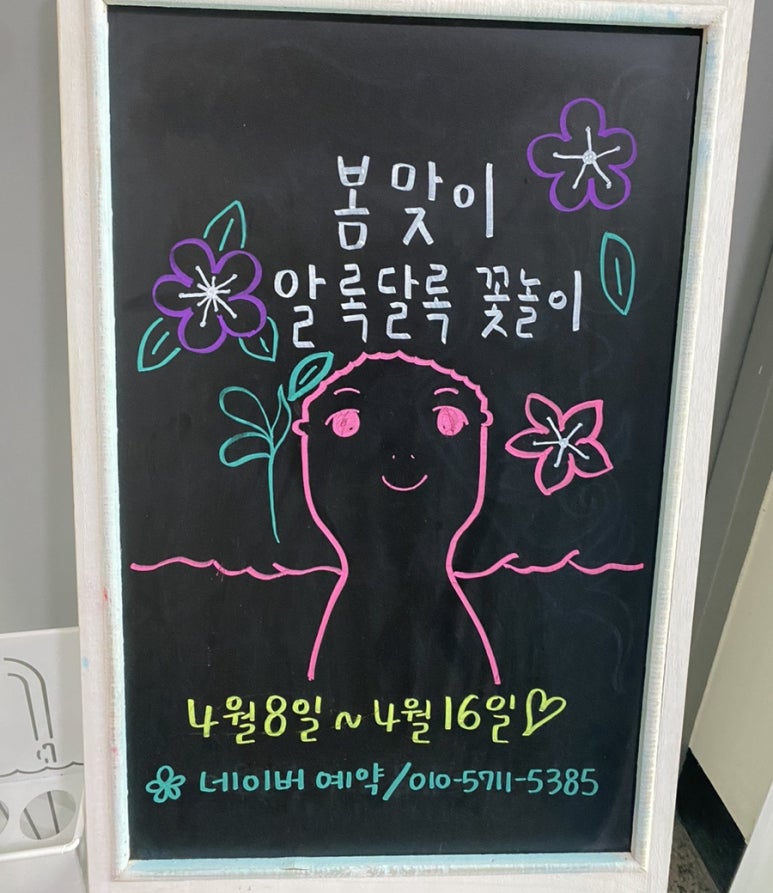 봄맞이
알록달록 꽃놀이
4월8일~4월16일♡
네이버 예약/010-5711-5385